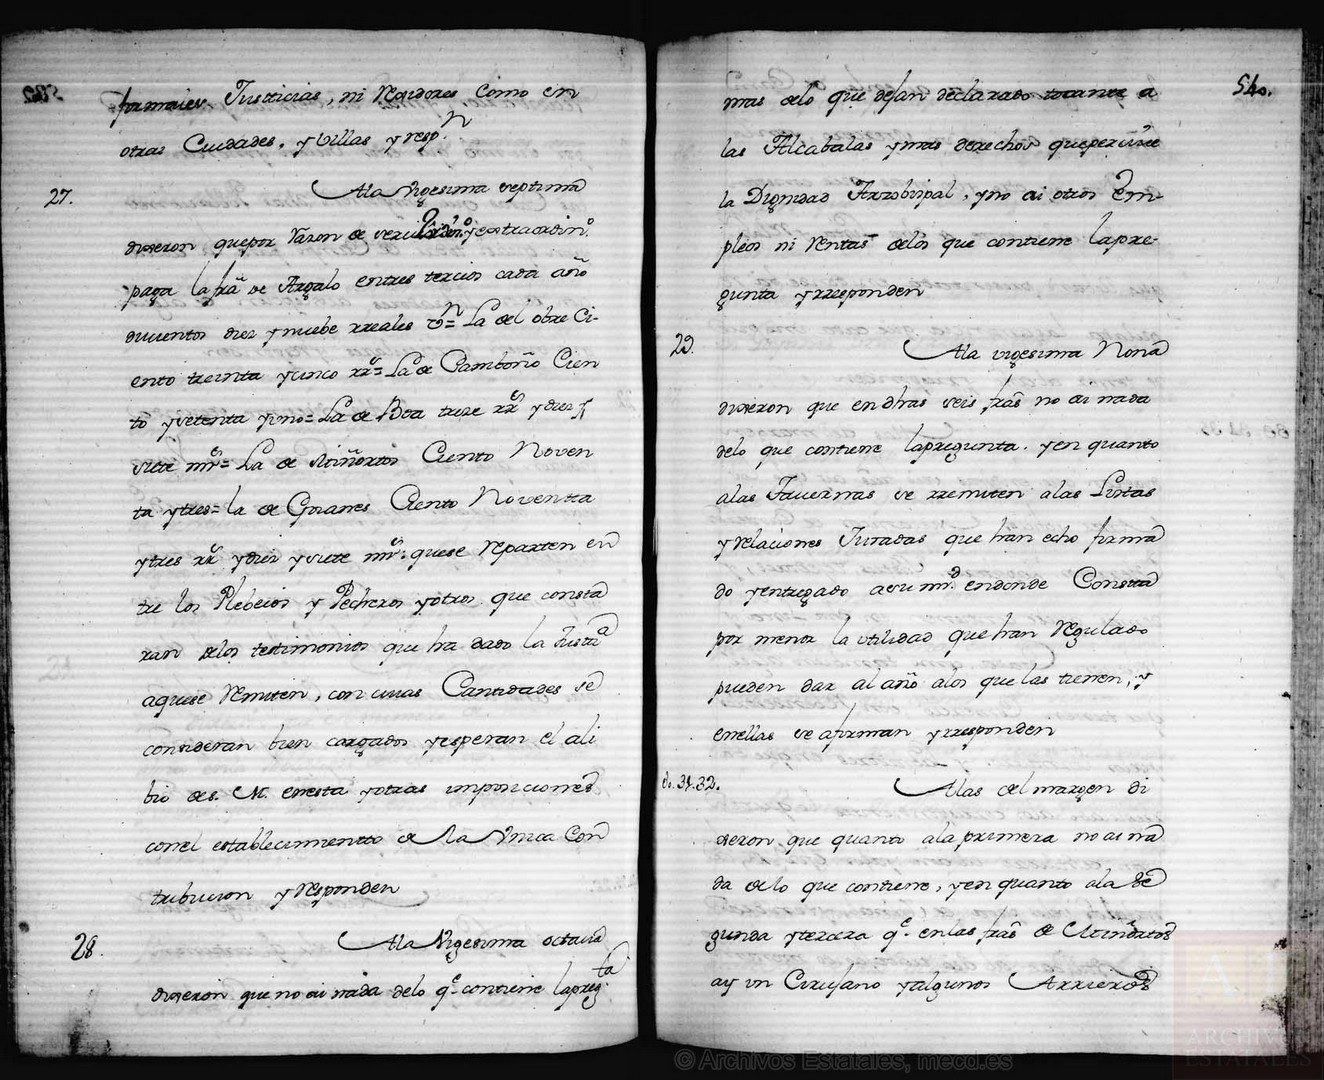 formales Justicias, ni Rexidores como en
otras Ciudades, y Villas y resp.n
27.
Ala Vigesima septima
dixeron que por razon de servicio ordin.o y extraordin.o
paga la fra de Argalo entres tercios cada año
ducientos diez y nuebe rreales v.n = La del obre Ci-
ento treinta y cinco rr.s = La de Camboño Cien
to y setenta y uno = La de Boa trece rr.s y diez y
siete mrs = La de Miñortos Ciento Noven
ta y tres = la de Goianes Ciento Noventa
y tres rr.s y diez y siete mrs. que se reparten en
tre los Plebeios y Pecheros y otros que consta
ran delos testimonios que ha dado la Justa
aquese remiten, con cuias Cantidades se
consideran bien cargados y esperan el ali
bio de s. M. en esta y otras imposiciones
con el establecimientto de la Vnica Con
tribucion y responden
28.
Ala Vigesima octava
dixeron que no ai nada delo q.e contiene la preg.ta
540.
mas delo que dejan declarado tocante a
las Alcabalas y mas derechos que percive
la Dignidad Arzobispal, y no ai otros Em-
pleos ni Rentas delos que contiene la pre-
gunta y rresponden
29.
Ala vigesima Nona
dixeron que en dhas seis fras no ai nada
delo que contiene la pregunta. y en quanto
alas Tavernas se rremiten alas Listas
y relaciones Juradas que han echo firma
do y entregado a su mrd. en donde Consta
por menor la vtilidad que han regulado
pueden dar al año alos que las tienen, y
en ellas se afirman y rresponden
30.31.32.
Alas del margen di
xeron que quanto ala primera no ai na
da delo que contiene, y en quanto ala Se
gunda y tercera q.e en las fras de Miñortos
ay vn Cirujano y algunos Arrieros
© Archivos Estatales, mecd.es
ARCHIVOS
ESTATALES